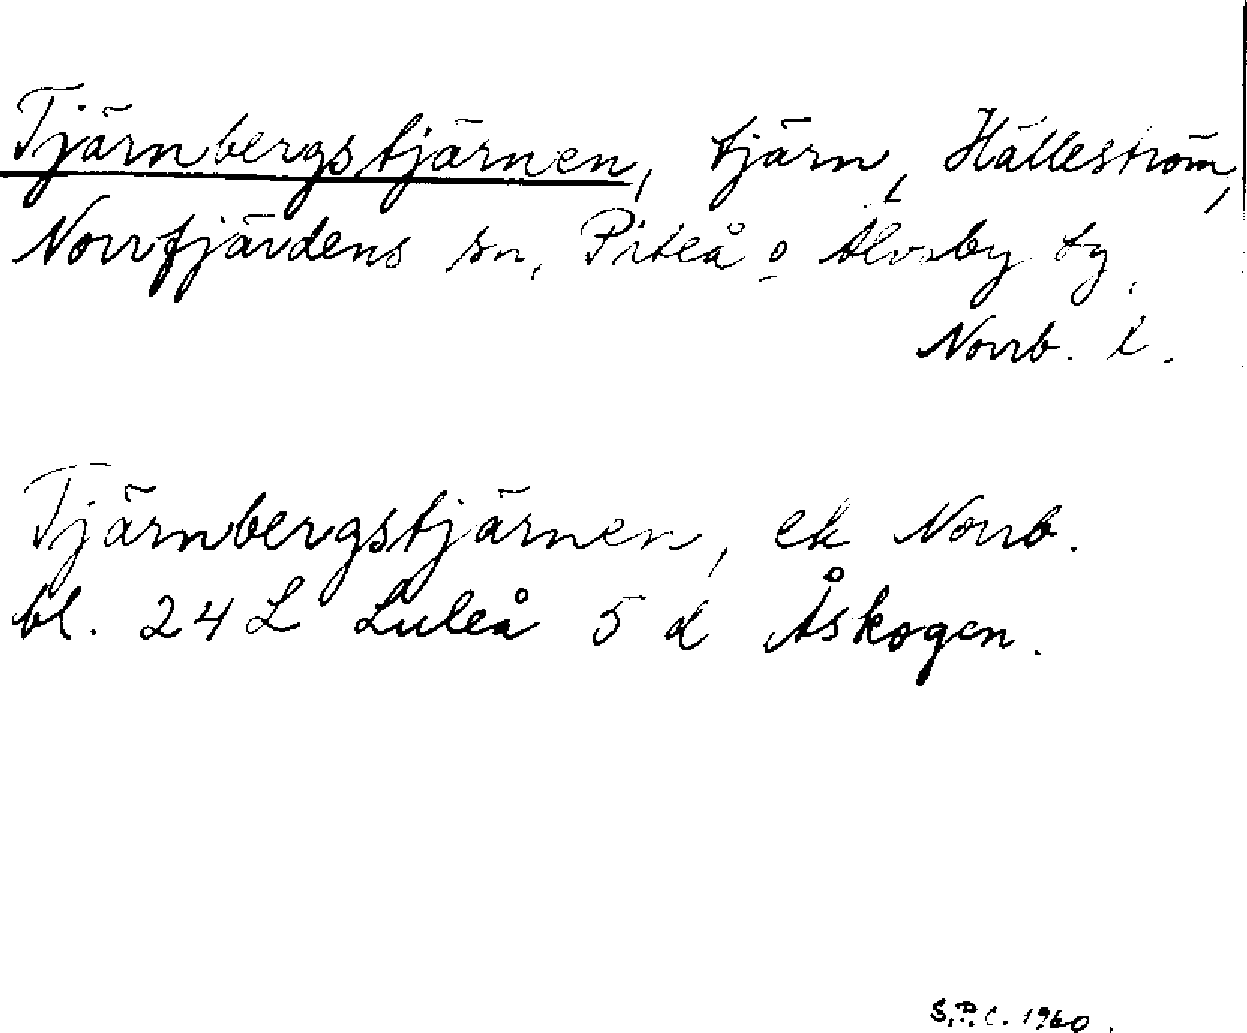 Tjärnbergstjärnen, tjärn, Hälleström,
Norrfjärdens sn, Piteå o Älvsby tg,
Norrb. l.
Tjärnbergstjärnen, ek Norrb.
bl. 24 L Luleå 5 d Åskogen.
S.P.C. 1960.